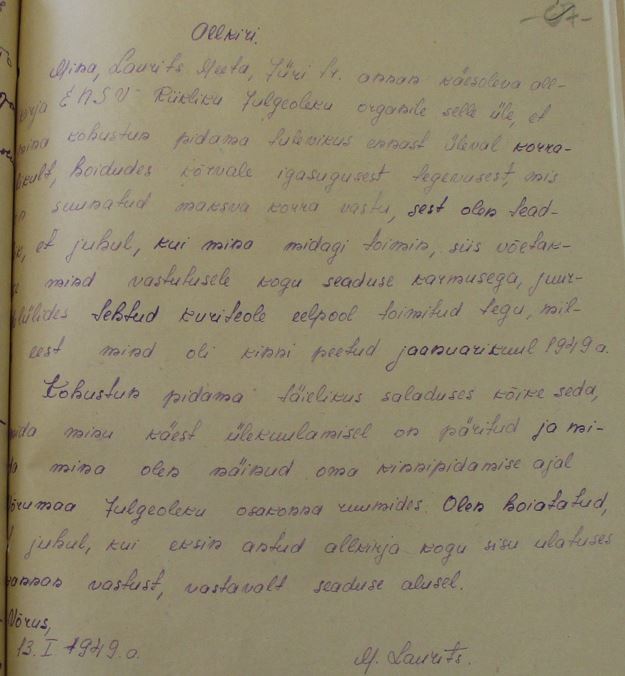 Allkiri.
Mina, Laurits Meeta, Jüri tr. annan käesoleva all-
kirja ENSV Riikliku Julgeoleku organile selle üle, et
mina kohustun pidama tulevikus ennast üleval korra-
likult, hoidudes kõrvale igasugusest tegevusest, mis
on suunatud maksva korra vastu, sest olen tead-
lik, et juhul, kui mina midagi toimin, siis võetak-
se mind vastutusele kogu seaduse karmusega, juur-
delülides tehtud kuriteole eelpool toimitud tegu, mil-
eest mind oli kinni peetud jaanuarikuul 1949 a.
Kohustun pidama täielikus saladuses kõike seda,
mida minu käest ülekuulamisel on päritud ja mi-
da mina olen näinud oma kinnipidamise ajal
Võrumaa Julgeoleku osakonna ruumides. Olen hoiatatud,
et juhul, kui eksin antud allkirja kogu sisu ulatuses
kannan vastust, vastavalt seaduse alusel.
Võrus,
13. I 1949. a.
M. Laurits.